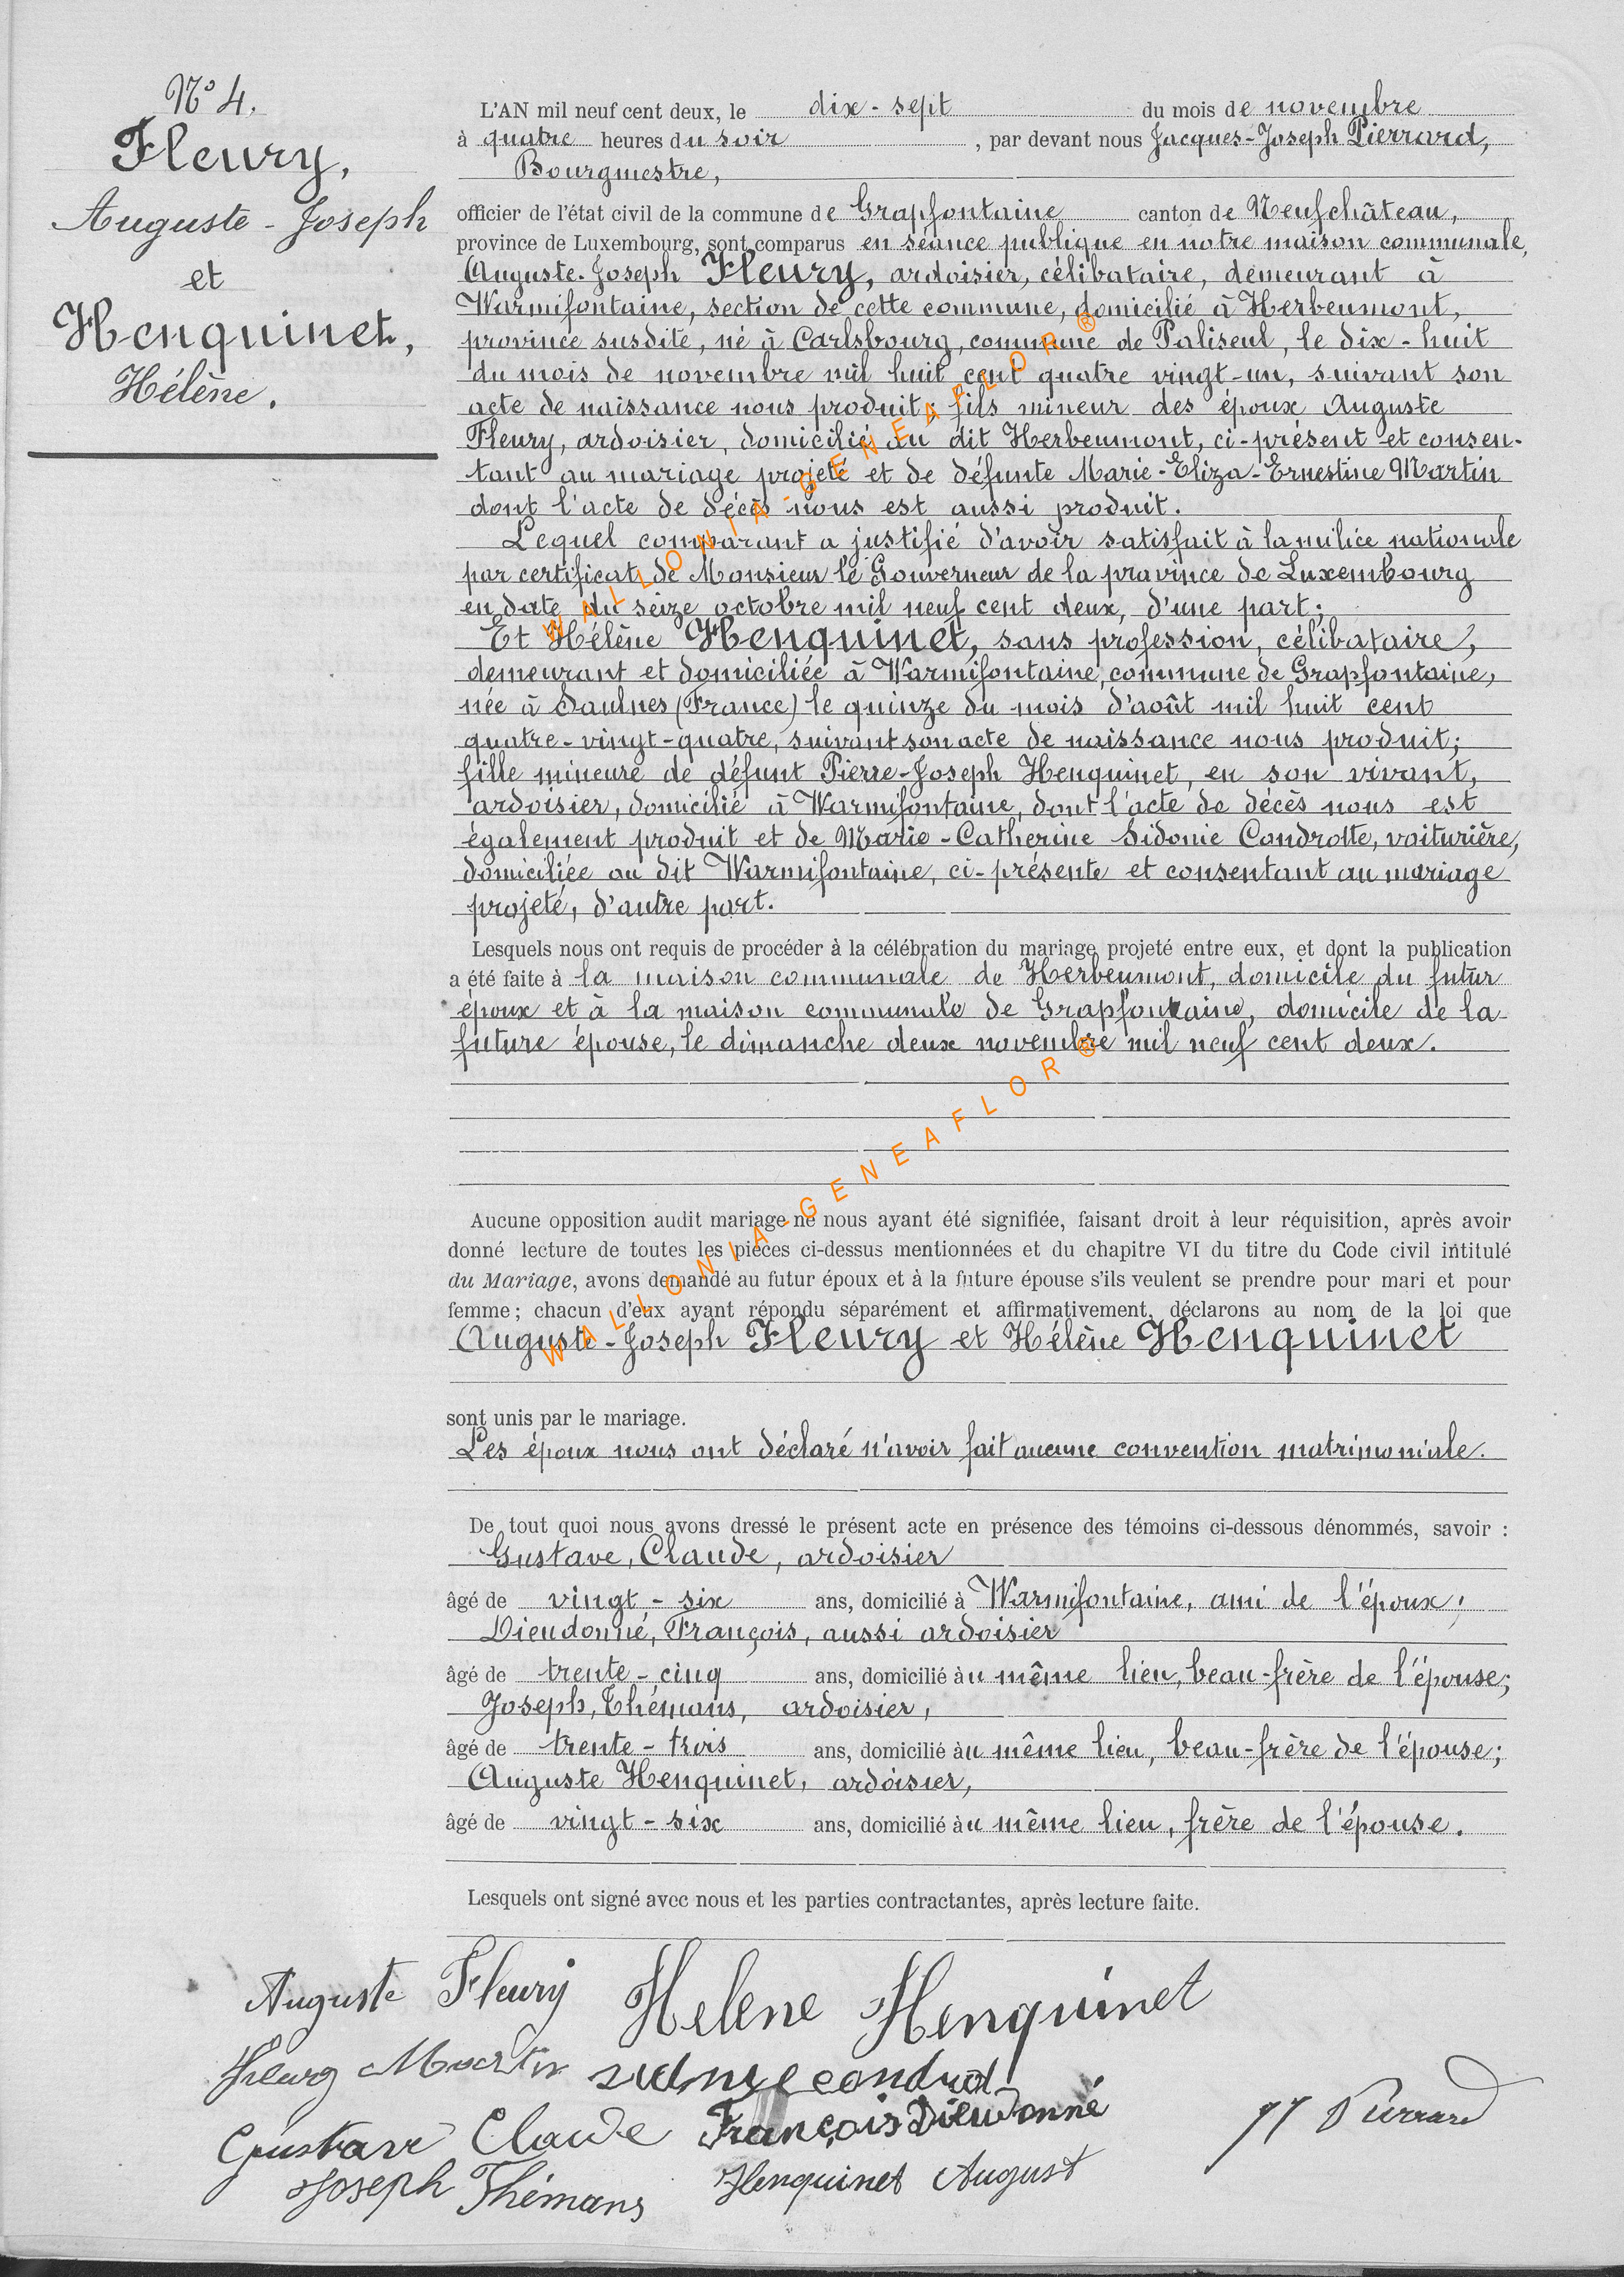 N° 4.
Fleury,
Auguste-Joseph
et
Henquinet,
Hélène.
L'AN mil neuf cent deux, le dix-sept du mois de novembre
à quatre heures du soir, par devant nous Jacques-Joseph Pierrard,
Bourgmestre,
officier de l'état civil de la commune de Grapfontaine canton de Neufchâteau,
province de Luxembourg, sont comparus en séance publique en notre maison communale,
Auguste-Joseph Fleury, ardoisier, célibataire, demeurant à
Warmifontaine, section de cette commune, domicilié à Herbeumont,
province susdite, né à Carlsbourg, commune de Paliseul, le dix-huit
du mois de novembre mil huit cent quatre vingt-un, suivant son
acte de naissance nous produit; fils mineur des époux Auguste
Fleury, ardoisier, domicilié au dit Herbeumont, ci-présent et consen-
tant au mariage projeté et de défunte Marie-Eliza-Ernestine Martin
dont l'acte de décès nous est aussi produit.
Lequel comparant a justifié d'avoir satisfait à la milice nationale
par certificat de Monsieur le Gouverneur de la province de Luxembourg
en date du seize octobre mil neuf cent deux, d'une part;
Et Hélène Henquinet, sans profession, célibataire,
demeurant et domiciliée à Warmifontaine, commune de Grapfontaine,
née à Saulnes (France) le quinze du mois d'août mil huit cent
quatre-vingt-quatre, suivant son acte de naissance nous produit;
fille mineure de défunt Pierre-Joseph Henquinet, en son vivant,
ardoisier, domicilié à Warmifontaine, dont l'acte de décès nous est
également produit et de Marie-Catherine Sidonie Condrotte, voiturière,
domiciliée au dit Warmifontaine, ci-présente et consentant au mariage
projeté, d'autre part.
Lesquels nous ont requis de procéder à la célébration du mariage projeté entre eux, et dont la publication
a été faite à la maison communale de Herbeumont, domicile du futur
époux et à la maison communale de Grapfontaine, domicile de la
future épouse, le dimanche deux novembre mil neuf cent deux.
Aucune opposition audit mariage ne nous ayant été signifiée, faisant droit à leur réquisition, après avoir
donné lecture de toutes les pièces ci-dessus mentionnées et du chapitre VI du titre du Code civil intitulé
du Mariage, avons demandé au futur époux et à la future épouse s'ils veulent se prendre pour mari et pour
femme; chacun d'eux ayant répondu séparément et affirmativement, déclarons au nom de la loi que
Auguste-Joseph Fleury et Hélène Henquinet
sont unis par le mariage.
Les époux nous ont déclaré n'avoir fait aucune convention matrimoniale.
De tout quoi nous avons dressé le présent acte en présence des témoins ci-dessous dénommés, savoir :
Gustave, Claude, ardoisier
âgé de vingt-six ans, domicilié à Warmifontaine, ami de l'époux;
Dieudonné, François, aussi ardoisier
âgé de trente-cinq ans, domicilié au même lieu, beau-frère de l'épouse;
Joseph, Thémans, ardoisier,
âgé de trente-trois ans, domicilié au même lieu, beau-frère de l'épouse;
Auguste Henquinet, ardoisier,
âgé de vingt-six ans, domicilié au même lieu, frère de l'épouse.
Lesquels ont signé avec nous et les parties contractantes, après lecture faite.
Auguste Fleury Helene Henquinet
Fleury Martin condrot
Gustave Claude François Dieudonné JJ Pierrard
Joseph Thémans Henquinet August
WALLONIA-GENEAFLOR®
WALLONIA-GENEAFLOR®